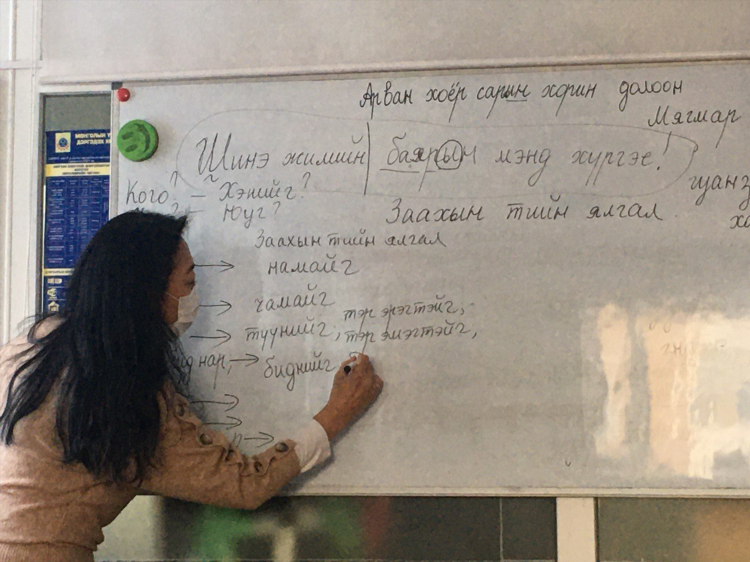 Арван хоёр сарын хорин долоон
Мягмар
Шинэ жилийн баярын мэнд хүргэе!
Кого? – Хэнийг?
– Юуг?
Заахын тийн ялгал
Заахын тийн ялгал
→ намайг
→ чамайг
→ түүнийг, тэр эрэгтэйг,
тэр эмэгтэйг,
нар, → биднийг
→
→
→